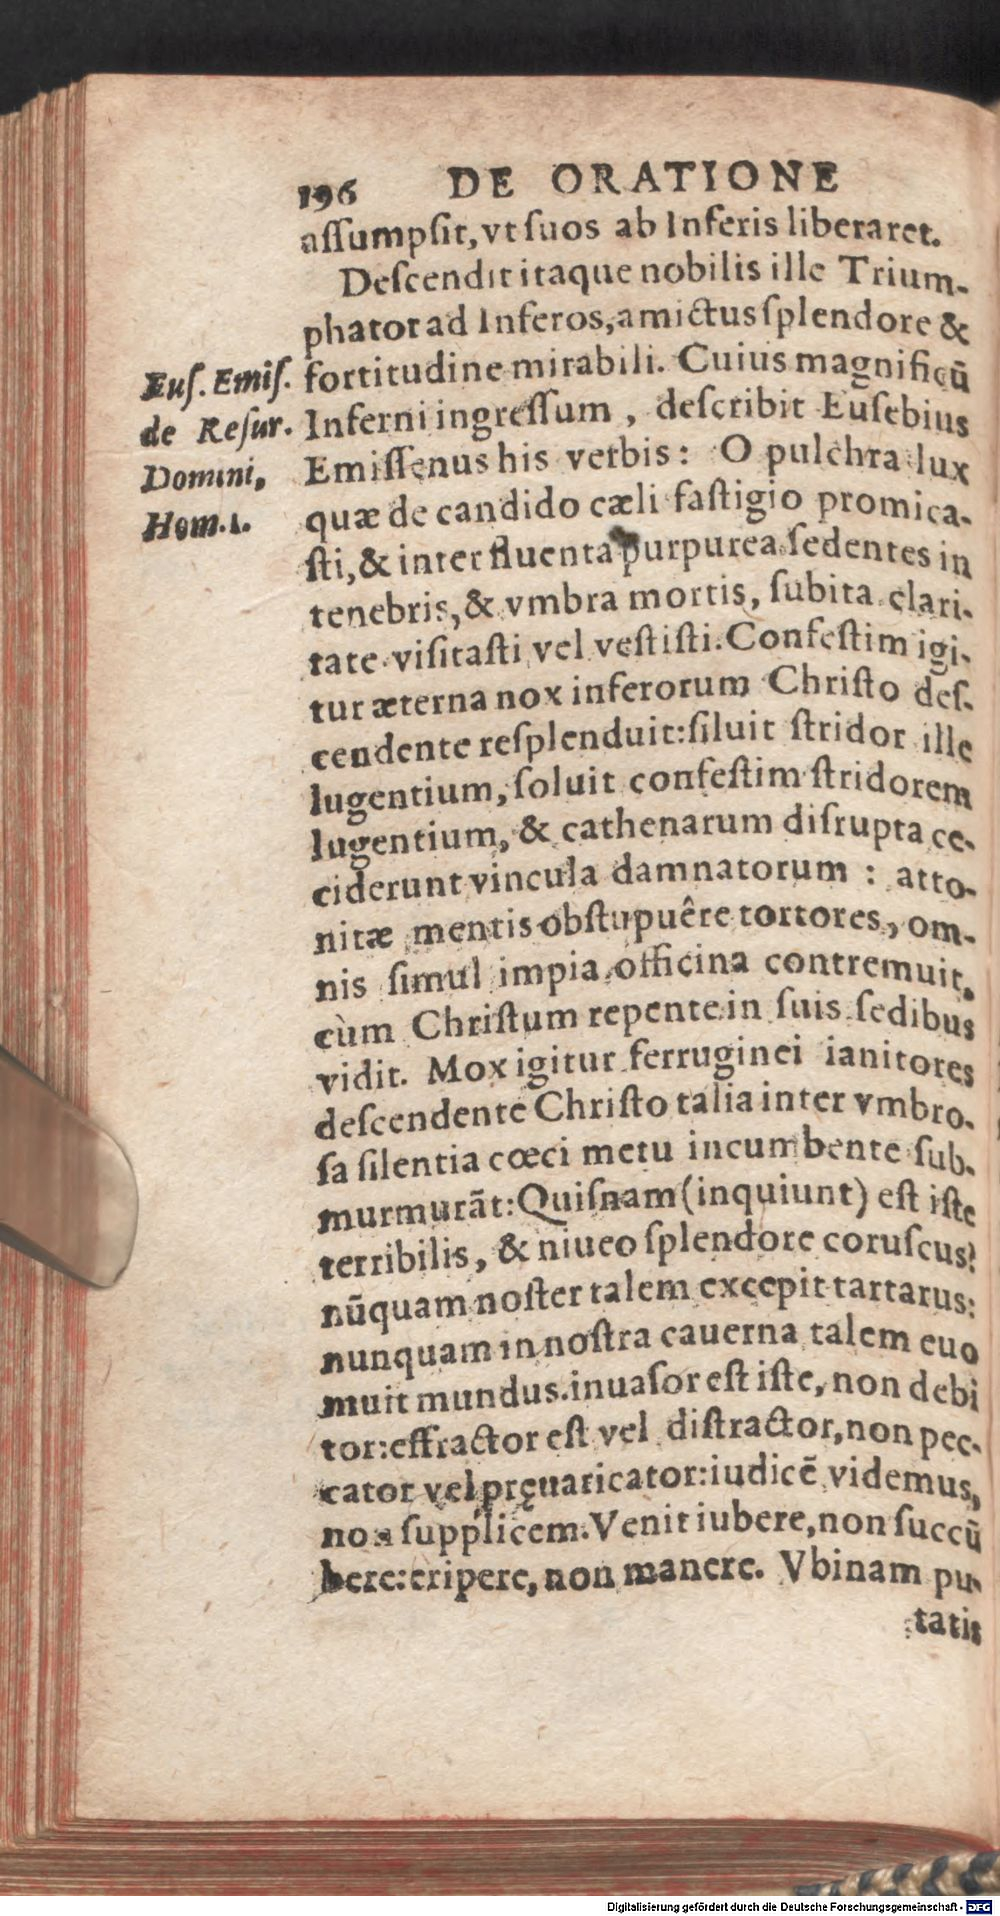 196 DE ORATIONE
aſſumpſit, vt ſuos ab Inferis liberaret.
Deſcendit itaque nobilis ille Trium-
phator ad Inferos, amictus ſplendore &
fortitudine mirabili. Cuius magnificū
Inferni ingreſſum, deſcribit Euſebius
Emiſſenus his verbis: O pulchra lux
quæ de candido cæli faſtigio promica-
ſti, & inter fluenta purpurea ſedentes in
tenebris, & vmbra mortis, ſubita clari-
tate viſitaſti vel veſtiſti. Confeſtim igi-
tur æterna nox inferorum Chriſto deſ-
cendente reſplenduit: ſiluit ſtridor ille
lugentium, ſoluit confeſtim ſtridorem
lugentium, & cathenarum diſrupta ce-
ciderunt vincula damnatorum : atto-
nitæ mentis obſtupuêre tortores, om-
nis ſimul impia officina contremuit,
cùm Chriſtum repente in ſuis ſedibus
vidit. Mox igitur ferruginei ianitores
deſcendente Chriſto talia inter vmbro-
ſa ſilentia cœci metu incumbente ſub-
murmurāt: Quiſnam (inquiunt) eſt iſte
terribilis, & niueo ſplendore coruſcus?
nūquam noſter talem excepit tartarus:
nunquam in noſtra cauerna talem euo
muit mundus. inuaſor eſt iſte, non debi
tor: effractor eſt vel diſtractor, non pec-
cator vel pręuaricator: iudicē videmus,
non ſupplicem. Venit iubere, non ſuccū
bere: eripere, non manere. Vbinam pu-
tatis
Euſ. Emiſ.
de Reſur.
Domini,
Hom. 1.
Digitalisierung gefördert durch die Deutsche Forschungsgemeinschaft - DFG